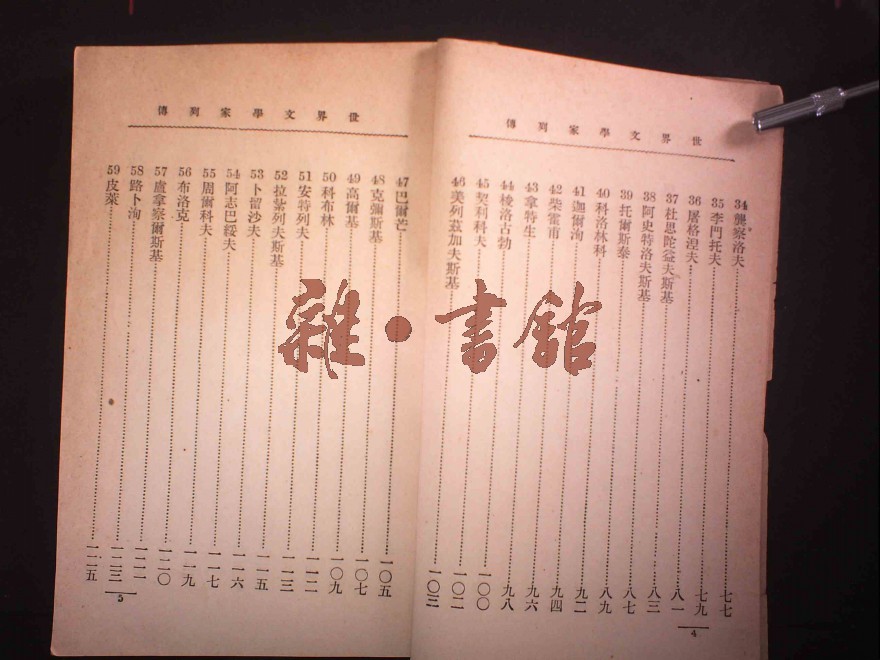 世界文學家列傳
34 龔察洛夫 七七
35 李門托夫 七九
36 屠格涅夫 八一
37 杜思陀益夫斯基 八三
38 阿史特洛夫斯基
39 托爾斯泰 八七
40 科洛林科 八九
41 迦爾洵 九二
42 柴霍甫 九四
43 拿特生 九六
44 梭洛古勃 九八
45 契利科夫 一〇〇
46 美列茲加夫斯基 一〇二
一〇三
4
世界文學家列傳
47 巴爾芒 一〇五
48 克彌斯基 一〇七
49 高爾基 一〇九
50 科布林
51 安特列夫 一一二
52 拉薺列夫斯基 一一三
53 卜留沙夫 一一五
54 阿志巴綏夫 一一六
55 周爾科夫 一一七
56 布洛克 一一九
57 盧拿察爾斯基 一二〇
58 路卜洵 一二一
59 皮萊 一二三
一二五
5
雜·書館